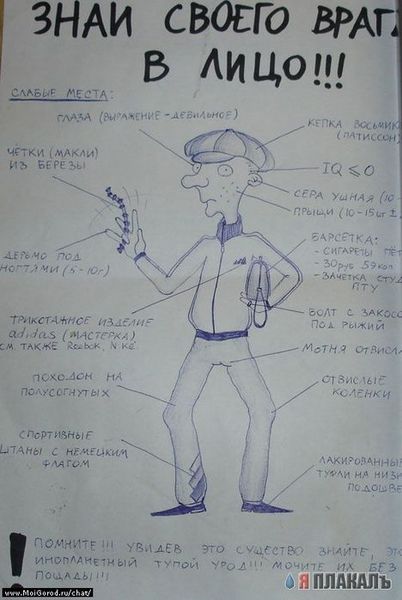 ЗНАЙ СВОЕГО
В ЛИЦО!!!
СЛАБЫЕ МЕСТА:
ГЛАЗА (ВЫРАЖЕНИЕ - ДЕБИЛЬНОЕ)
КЕПКА
(ПАТИССОН)
ЧЁТКИ (МАКЛИ)
ИЗ БЕРЕЗЫ
IQ ≤ 0
СЕРА УШНАЯ (10
ПРЫЩИ (10-15шт
БАРСЕТКА:
- СИГАРЕТЫ
- 30руб 59коп
- ЗАЧЕТКА
ПТУ
ДЕРЬМО ПОД
НОГТЯМИ (5-10г)
ТРИКОТАЖНОЕ ИЗДЕЛИЕ
adidas (МАСТЕРКА)
СМ. ТАКЖЕ Reebok, N.Ke.
БОЛТ С
ПОД РЫЖИЙ
МОТНЯ
ПОХОДОН НА
ПОЛУСОГНУТЫХ
ОТВИСЛЫЕ
КОЛЕНКИ
СПОРТИВНЫЕ
ШТАНЫ С НЕМЕЦКИМ
ФЛАГОМ
ЛАКИРОВАННЫЕ
ТУФЛИ НА
! ПОМНИТЕ!!! УВИДЕВ ЭТО СУЩЕСТВО ЗНАЙТЕ,
ИНОПЛАНЕТНЫЙ ТУПОЙ УРОД!!! МОЧИТЕ ИХ БЕЗ
ПОЩАДЫ!!!
www.MoiGorod.ru/chat/
Я ПЛАКАЛЪ